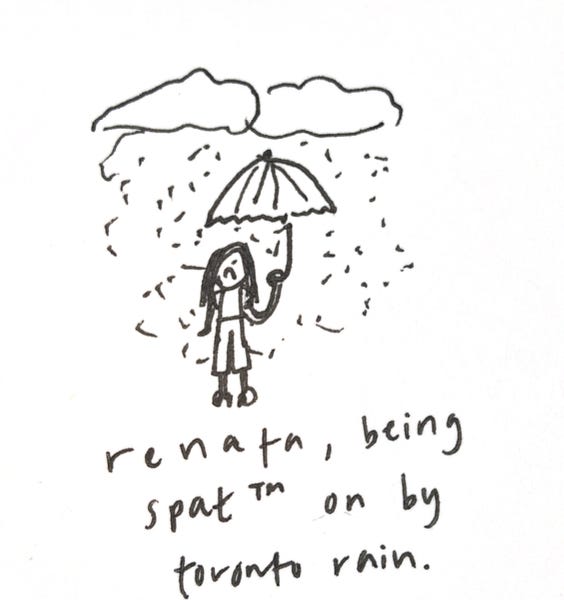 renata, being
spat™ on by
toronto rain.